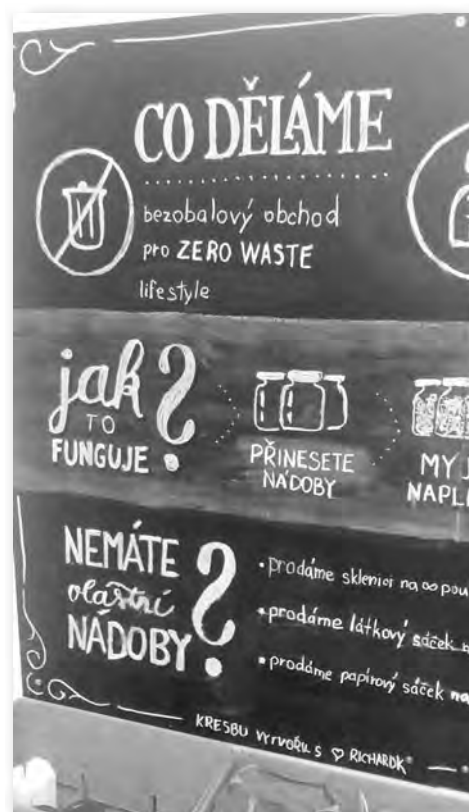 CO DĚLÁME
bezobalový obchod
pro ZERO WASTE
lifestyle
jak
TO
FUNGUJE ?
PŘINESETE
NÁDOBY
MY
NAPL
NEMÁTE
vlastní
NÁDOBY ?
• prodáme sklenici na ∞ pou
• prodáme látkový sáček
• prodáme papírový sáček na
KRESBU VYTVOŘIL S ♡ RICHARDK